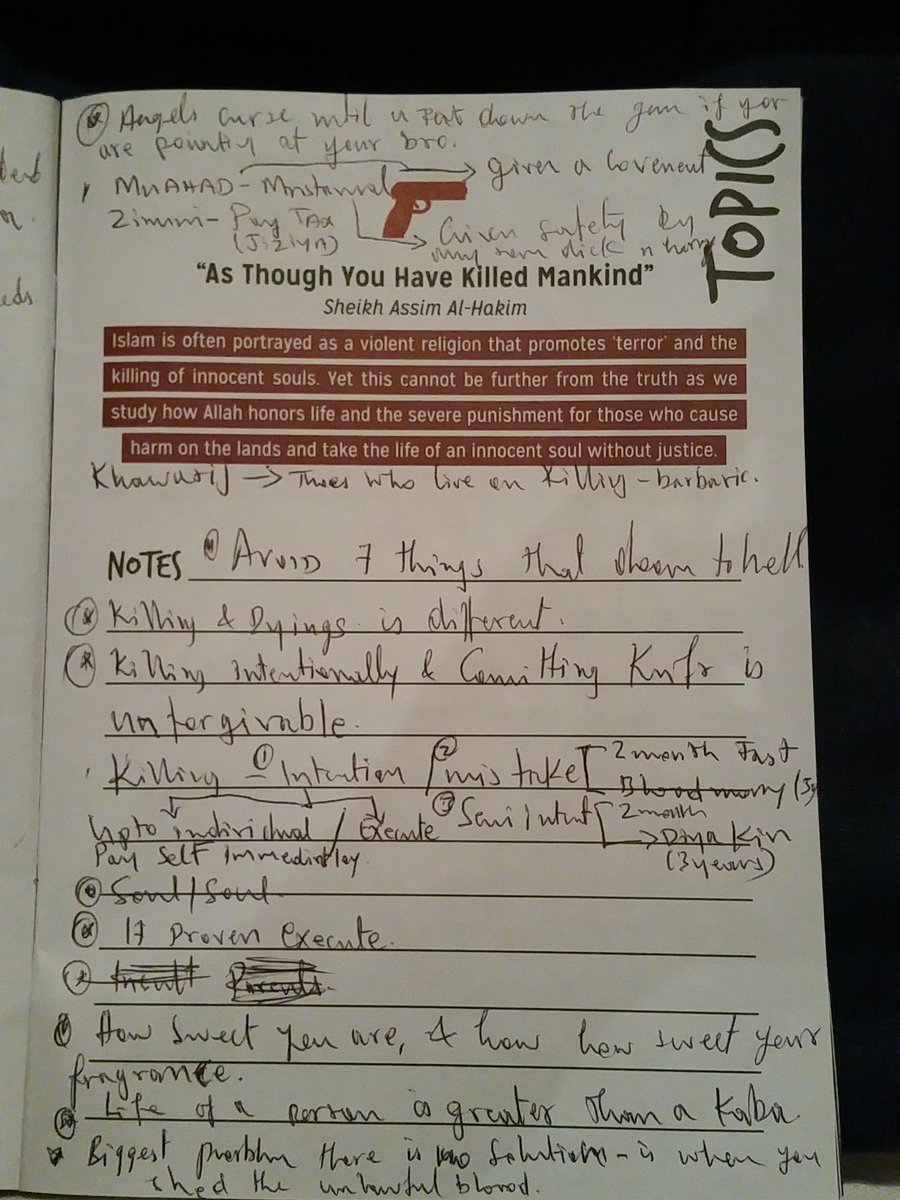 Angels curse until u Put down the gun if you
are pointing at your bro.
MuAHAD - Mustaman → given a Covenent
Zimmi - Pay Tax
(Jiziya)
Given safety by
any sen dick n harry
TOPICS
"As Though You Have Killed Mankind"
Sheikh Assim Al-Hakim
Islam is often portrayed as a violent religion that promotes 'terror' and the
killing of innocent souls. Yet this cannot be further from the truth as we
study how Allah honors life and the severe punishment for those who cause
harm on the lands and take the life of an innocent soul without justice.
Khawarij → Thoes who live on Killing - barbaric.
NOTES Avoid 7 things that doom to hell
Killing & Dyings is different.
Killing intentionally & Comitting Kufr is
unforgivable.
Killing - ① Intention / ② mistake [ 2 month Fast
Blood money
Upto individual / Execute ③ Semi Intent [ 2 month
→ Diya Kin
Pay Self Immediatley.
(3 years)
Soul/Soul
If Proven Execute.
How Sweet you are, & how how sweet your
fragrance.
Life of a person is greater than a Kaba
Biggest problem there is no Solution - is when you
shed the unlawful blood.
dent
eds